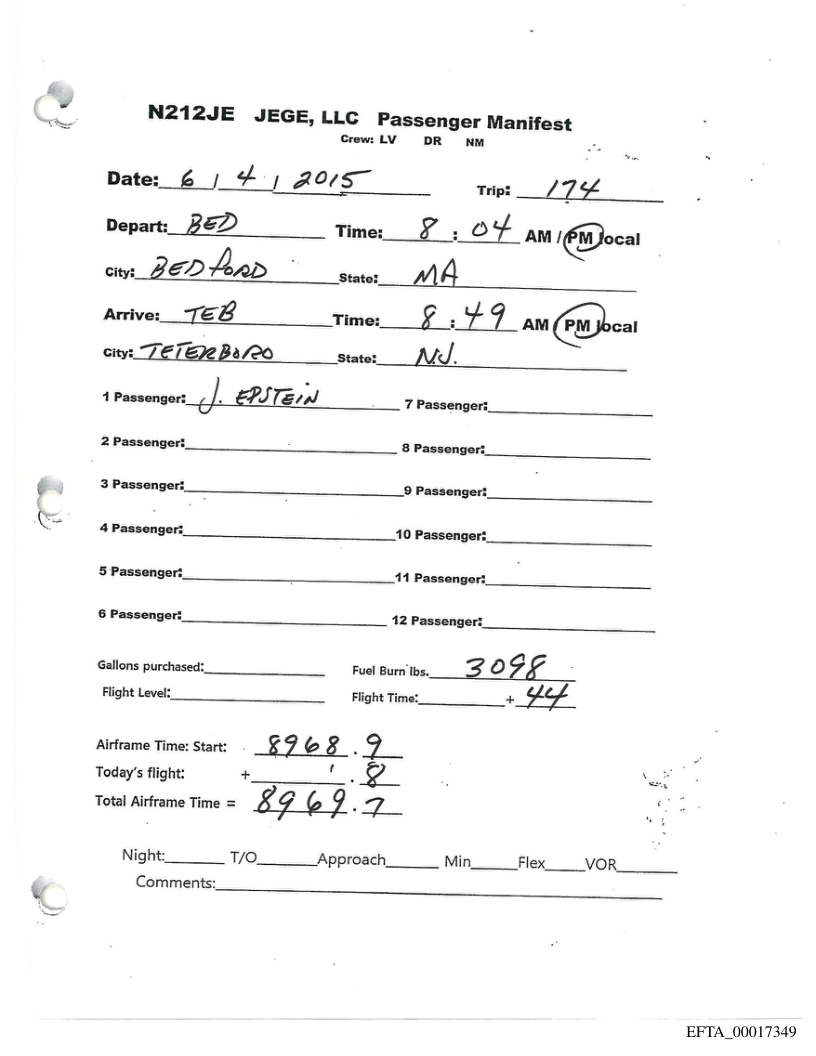 N212JE JEGE, LLC Passenger Manifest
Crew: LV DR NM
Date: 6 / 4 / 2015 Trip: 174
Depart: BED Time: 8 : 04 AM / PM local
City: BEDFORD State: MA
Arrive: TEB Time: 8 : 49 AM / PM local
City: TETERBORO State: NJ.
1 Passenger: J. EPSTEIN 7 Passenger:
2 Passenger: 8 Passenger:
3 Passenger: 9 Passenger:
4 Passenger: 10 Passenger:
5 Passenger: 11 Passenger:
6 Passenger: 12 Passenger:
Gallons purchased: Fuel Burn lbs. 3098
Flight Level: Flight Time: + 44
Airframe Time: Start: 8968 . 9
Today's flight: + . 8
Total Airframe Time = 8969 . 7
Night: T/O Approach Min Flex VOR
Comments:
EFTA_00017349